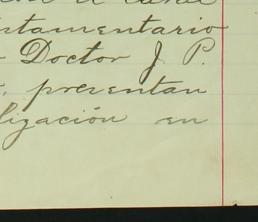 ntamentario
Doctor J. P.
presentan
lización en